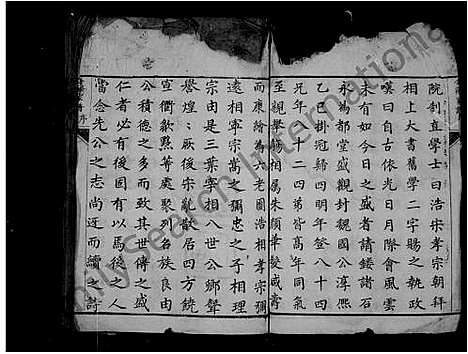 院制直學士曰浩宋孝宗朝拜
相上大書舊學二字賜之執政
嘆曰自古依光日月際會風雲
未有如今日之盛者請鏤諸石
永為都堂盛觀封魏國公淳熙
乙巳掛冠歸四明年登八十四
兄年八十二四弟皆高年同氣
至親舉觴相属朱顏華髮咸壽
而康繪為六老圖浩相孝宗彌
遠相寧宗嵩之彌忠之子相理
宗由是三葉宰相八世公卿聲
譽煌煌厥後宋亂散居四方饒
宣衢歙黙等處聚為名族良由
公積德之多而致其世傳之盛
仁者必有後固有以焉後之人
當念先公之志尚近而續之詩
familysearch International